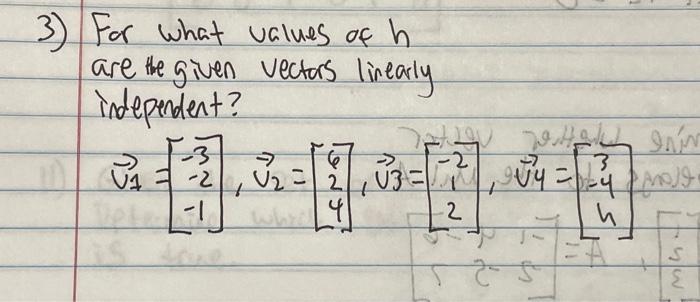 3) For what values of h
are the given vectors linearly
independent?
v⃗1 = [-3 -2 -1], v⃗2 = [6 2 4], v⃗3 = [-2 1 2], v⃗4 = [3 -4 h]